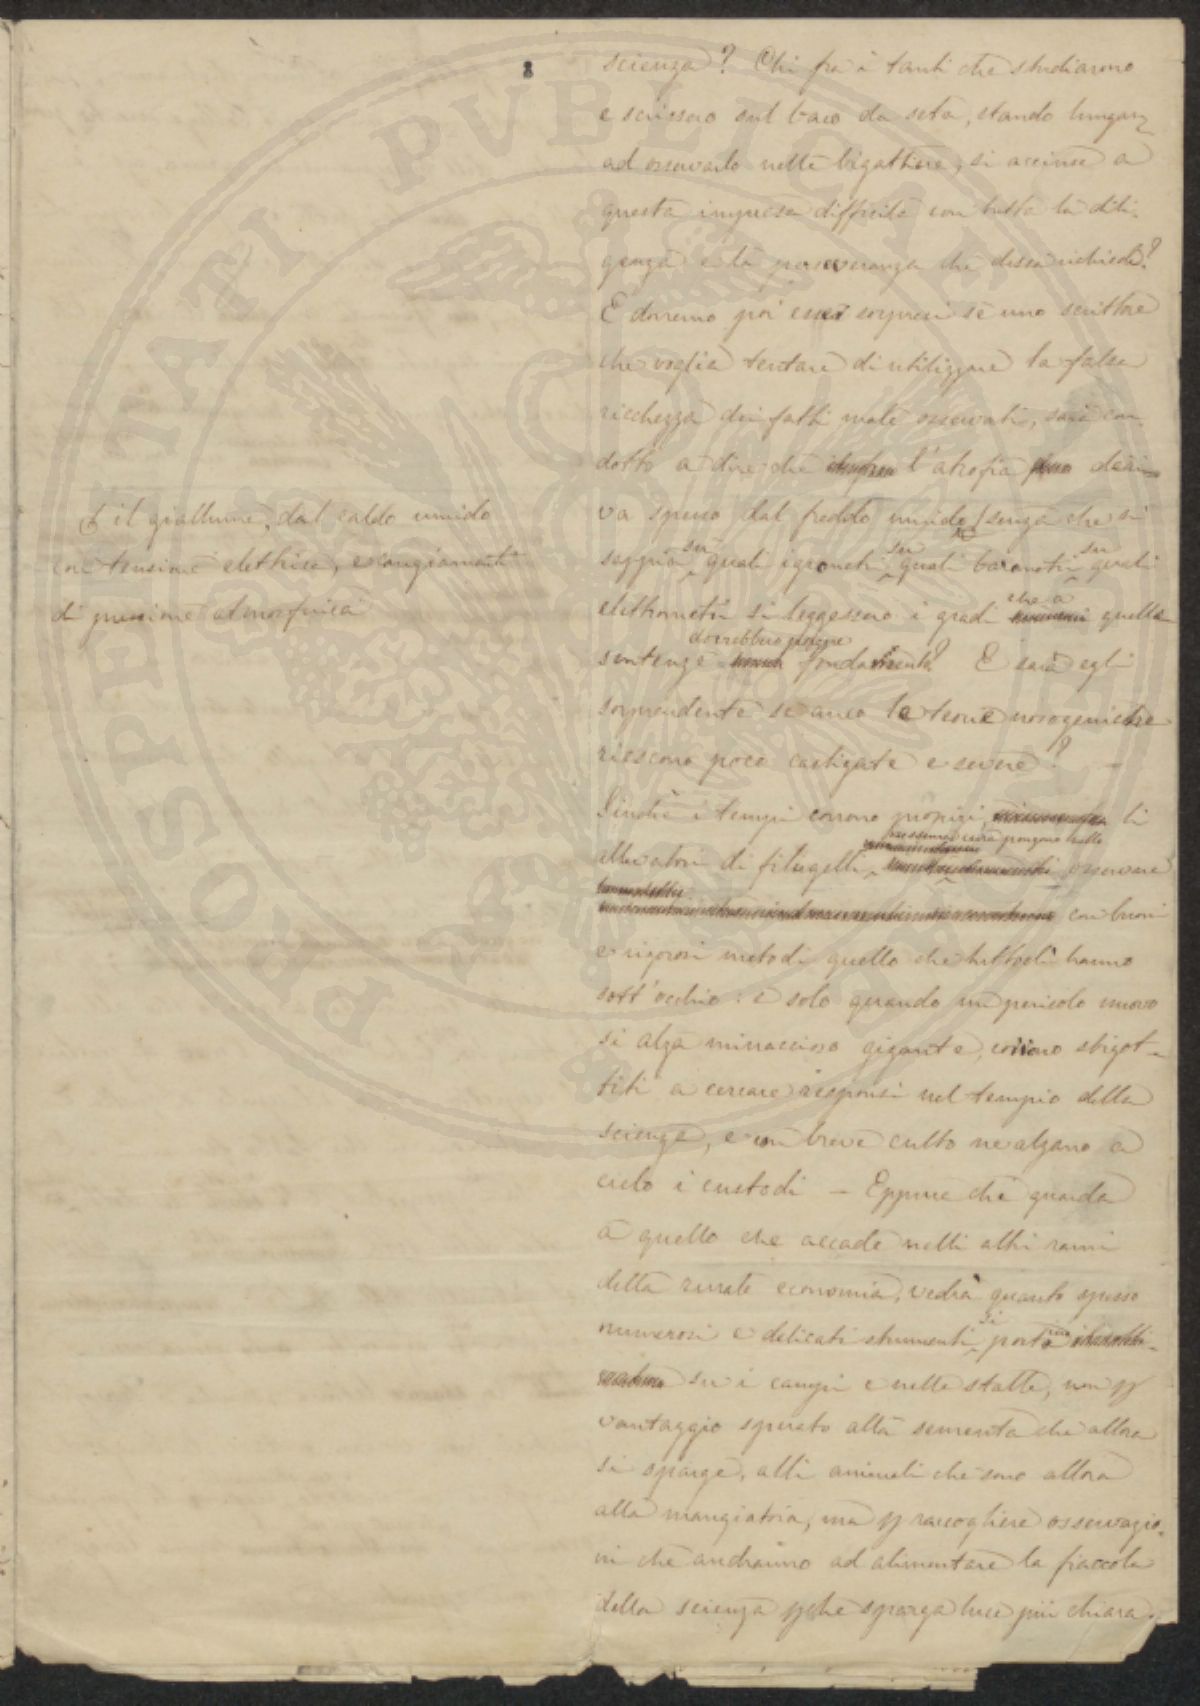 8
scienza? Chi fra i tanti che studiarono
e scrissero sul baco da seta, stando lungam.
ad osservarlo nelle bigattiere, si accinse a
questa impresa difficile con tutta la dili-
genza e la perseveranza che dessa richiede?
E dovremo poi esser sorpresi se uno scrittore
che voglia tentare di utilizzare la falsa
ricchezza dei fatti male osservati, sarà con-
dotto a dire che l'atrofia deri-
va spesso dal freddo umido senza che si
sappia su quali igrometri su quali barometri su quali
elettrometri si leggessero i gradi che a quelle
sentenze dovrebbero porgere fondamenta? E sarà egli
sorprendente se anco le teorie nosogeniche
riescono poco castigate e severe?
Finchè i tempi corrono propizi, li
allevatori di filugelli nessuna cura pongono nello
osservare
con buoni
e rigorosi metodi quello che tuttodì hanno
sott'occhio: e solo quando un pericolo nuovo
si alza minaccioso gigante, corrono sbigot-
titi a cercare responsi nel tempio della
scienza, e con breve culto ne alzano a
cielo i custodi — Eppure chi guarda
a quello che accade nelli altri rami
della rurale economia, vedrà quanto spesso
numerosi e delicati strumenti si portino
su i campi e nelle stalle, non p
vantaggio sperato alla sementa che allora
si sparge, alli animali che sono allora
alla mangiatoia, ma p raccogliere osservazio-
ni che andranno ad alimentare la fiaccola
della scienza pchè sparga luce più chiara.
il giallume, dal caldo umido
con tensione elettrica, e cangiamenti
di pressione atmosferica
PROSPERITATI PVBLICAE